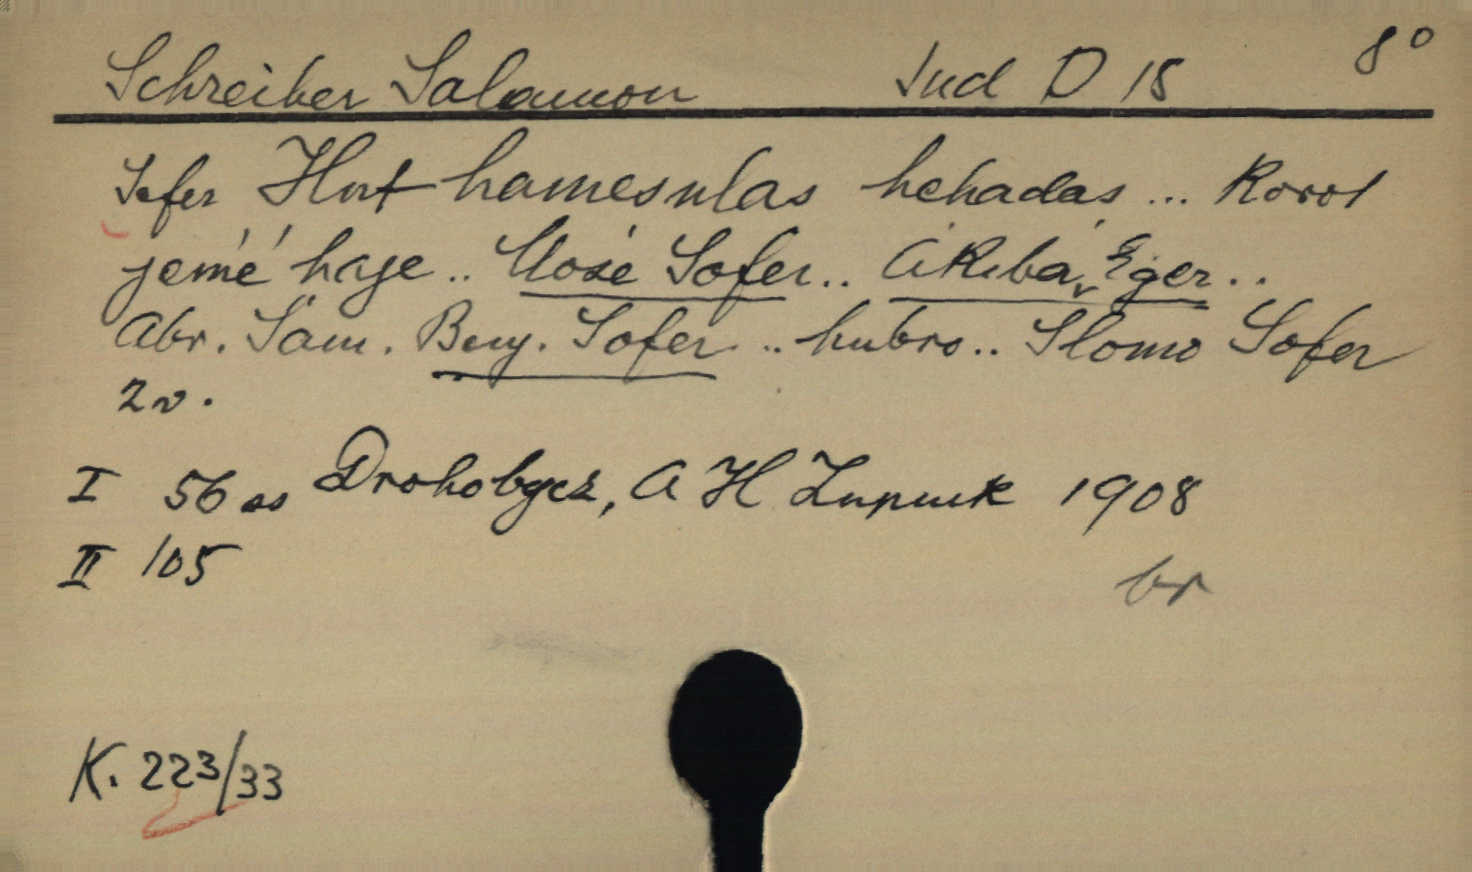 Schreiber Salamon Jud D 18 8°
Sefer Hut hamesulas hehadas ... Korot
jemé haje .. Mosé Sofer .. Akiba Eger ..
Abr. Sam. Benj. Sofer .. hubro .. Slomo Sofer
2 v.
I 56 es Drohobycz, A H Zupnik 1908
II 105
br
K. 223/33